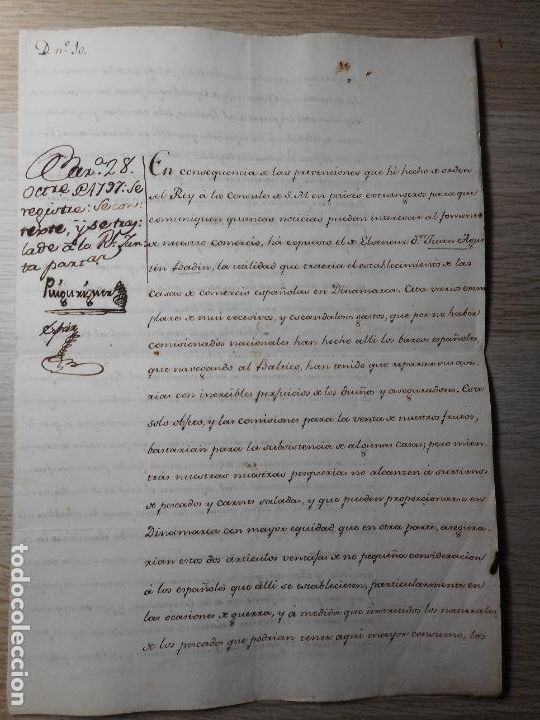 D. nº. 10.
Barna. 28.
Octre. de 1797: Se
registre: Se con-
texte, y se tras-
lade à la Rl. Jun-
ta partar
Puiguriguer
Espar
En consequencia de las prevenciones que hé hecho de orden
del Rey á los Consules de S.M en paises extrangeros para que
comuniquen quantas noticias puedan interesar al fomento
de nuestro comercio, ha expuesto el de Elseneur Dn. Juan Agus-
tin Badin, la utilidad que traería el establecimiento de las
casas de comercio españolas en Dinamarca. Cita varios exem-
plares de mui excesivos, y escandalosos gastos, que por no haber
comisionados nacionales han hecho allí los barcos españoles,
que navegando al Baltico, han tenido que reparar sus ave-
rias con increibles perjuicios de los dueños y aseguradores. Este
solo objeto, y las comisiones para la venta de nuestros frutos,
bastarian para la subsistencia de algunas casas; pero mien-
tras nuestras nuestras pesquerias no alcanzen á surtirnos
de pescados y carnes saladas, y que pueden proporcionarse en
Dinamarca con mayor equidad que en otra parte, asegura-
rian estos dos articulos ventajas de no pequeña consideracion
á los españoles que allí se estableciesen, particularmente en
las ocasiones de guerra, y á medida que instruidos los naturales
de los pescados que podrian tener aquí mayor consumo, los
todocoleccion